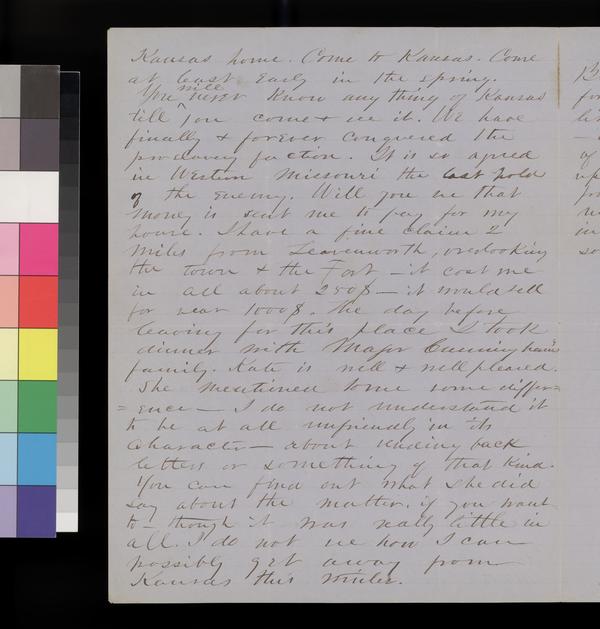 Kansas home. Come to Kansas. Come
at least early in the spring.
will
You never know any thing of Kansas
till you come & see it. We have
finally & forever conquered the
proslavery faction. It is so agreed
in Western Missouri the last hold
of the enemy. Will you see that
money is sent me to pay for my
house. I have a fine claim 2
miles from Leavenworth, overlooking
the town & the Fort – it cost me
in all about 250$ – it would sell
for near 1000$. The day before
leaving for this place I took
dinner with Major Cunningham's
family. Kate is well & well pleased.
She mentioned to me some differ=
=ence – I do not understand it
to be at all unfriendly in its
character – about sending back
letters or something of that kind.
You can find out what she did
say about the matter, if you want
to – though it was really little in
all. I do not see how I can
possibly get away from
Kansas this winter.